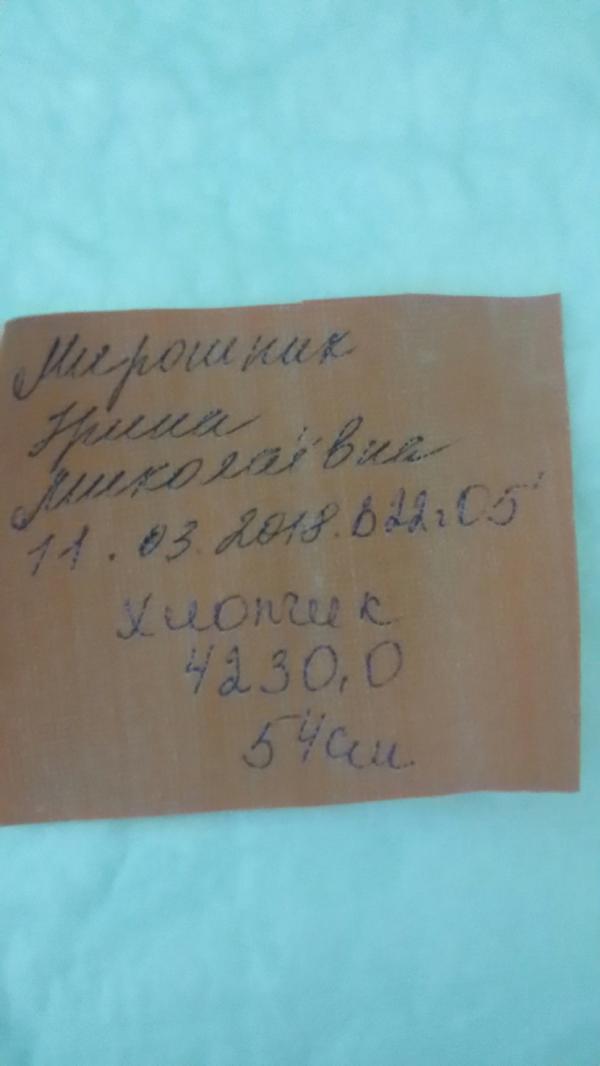 Мирошник
Ірина
Миколаївна
11.03.2018. в 22:05'
хлопчик
4230,0
54см